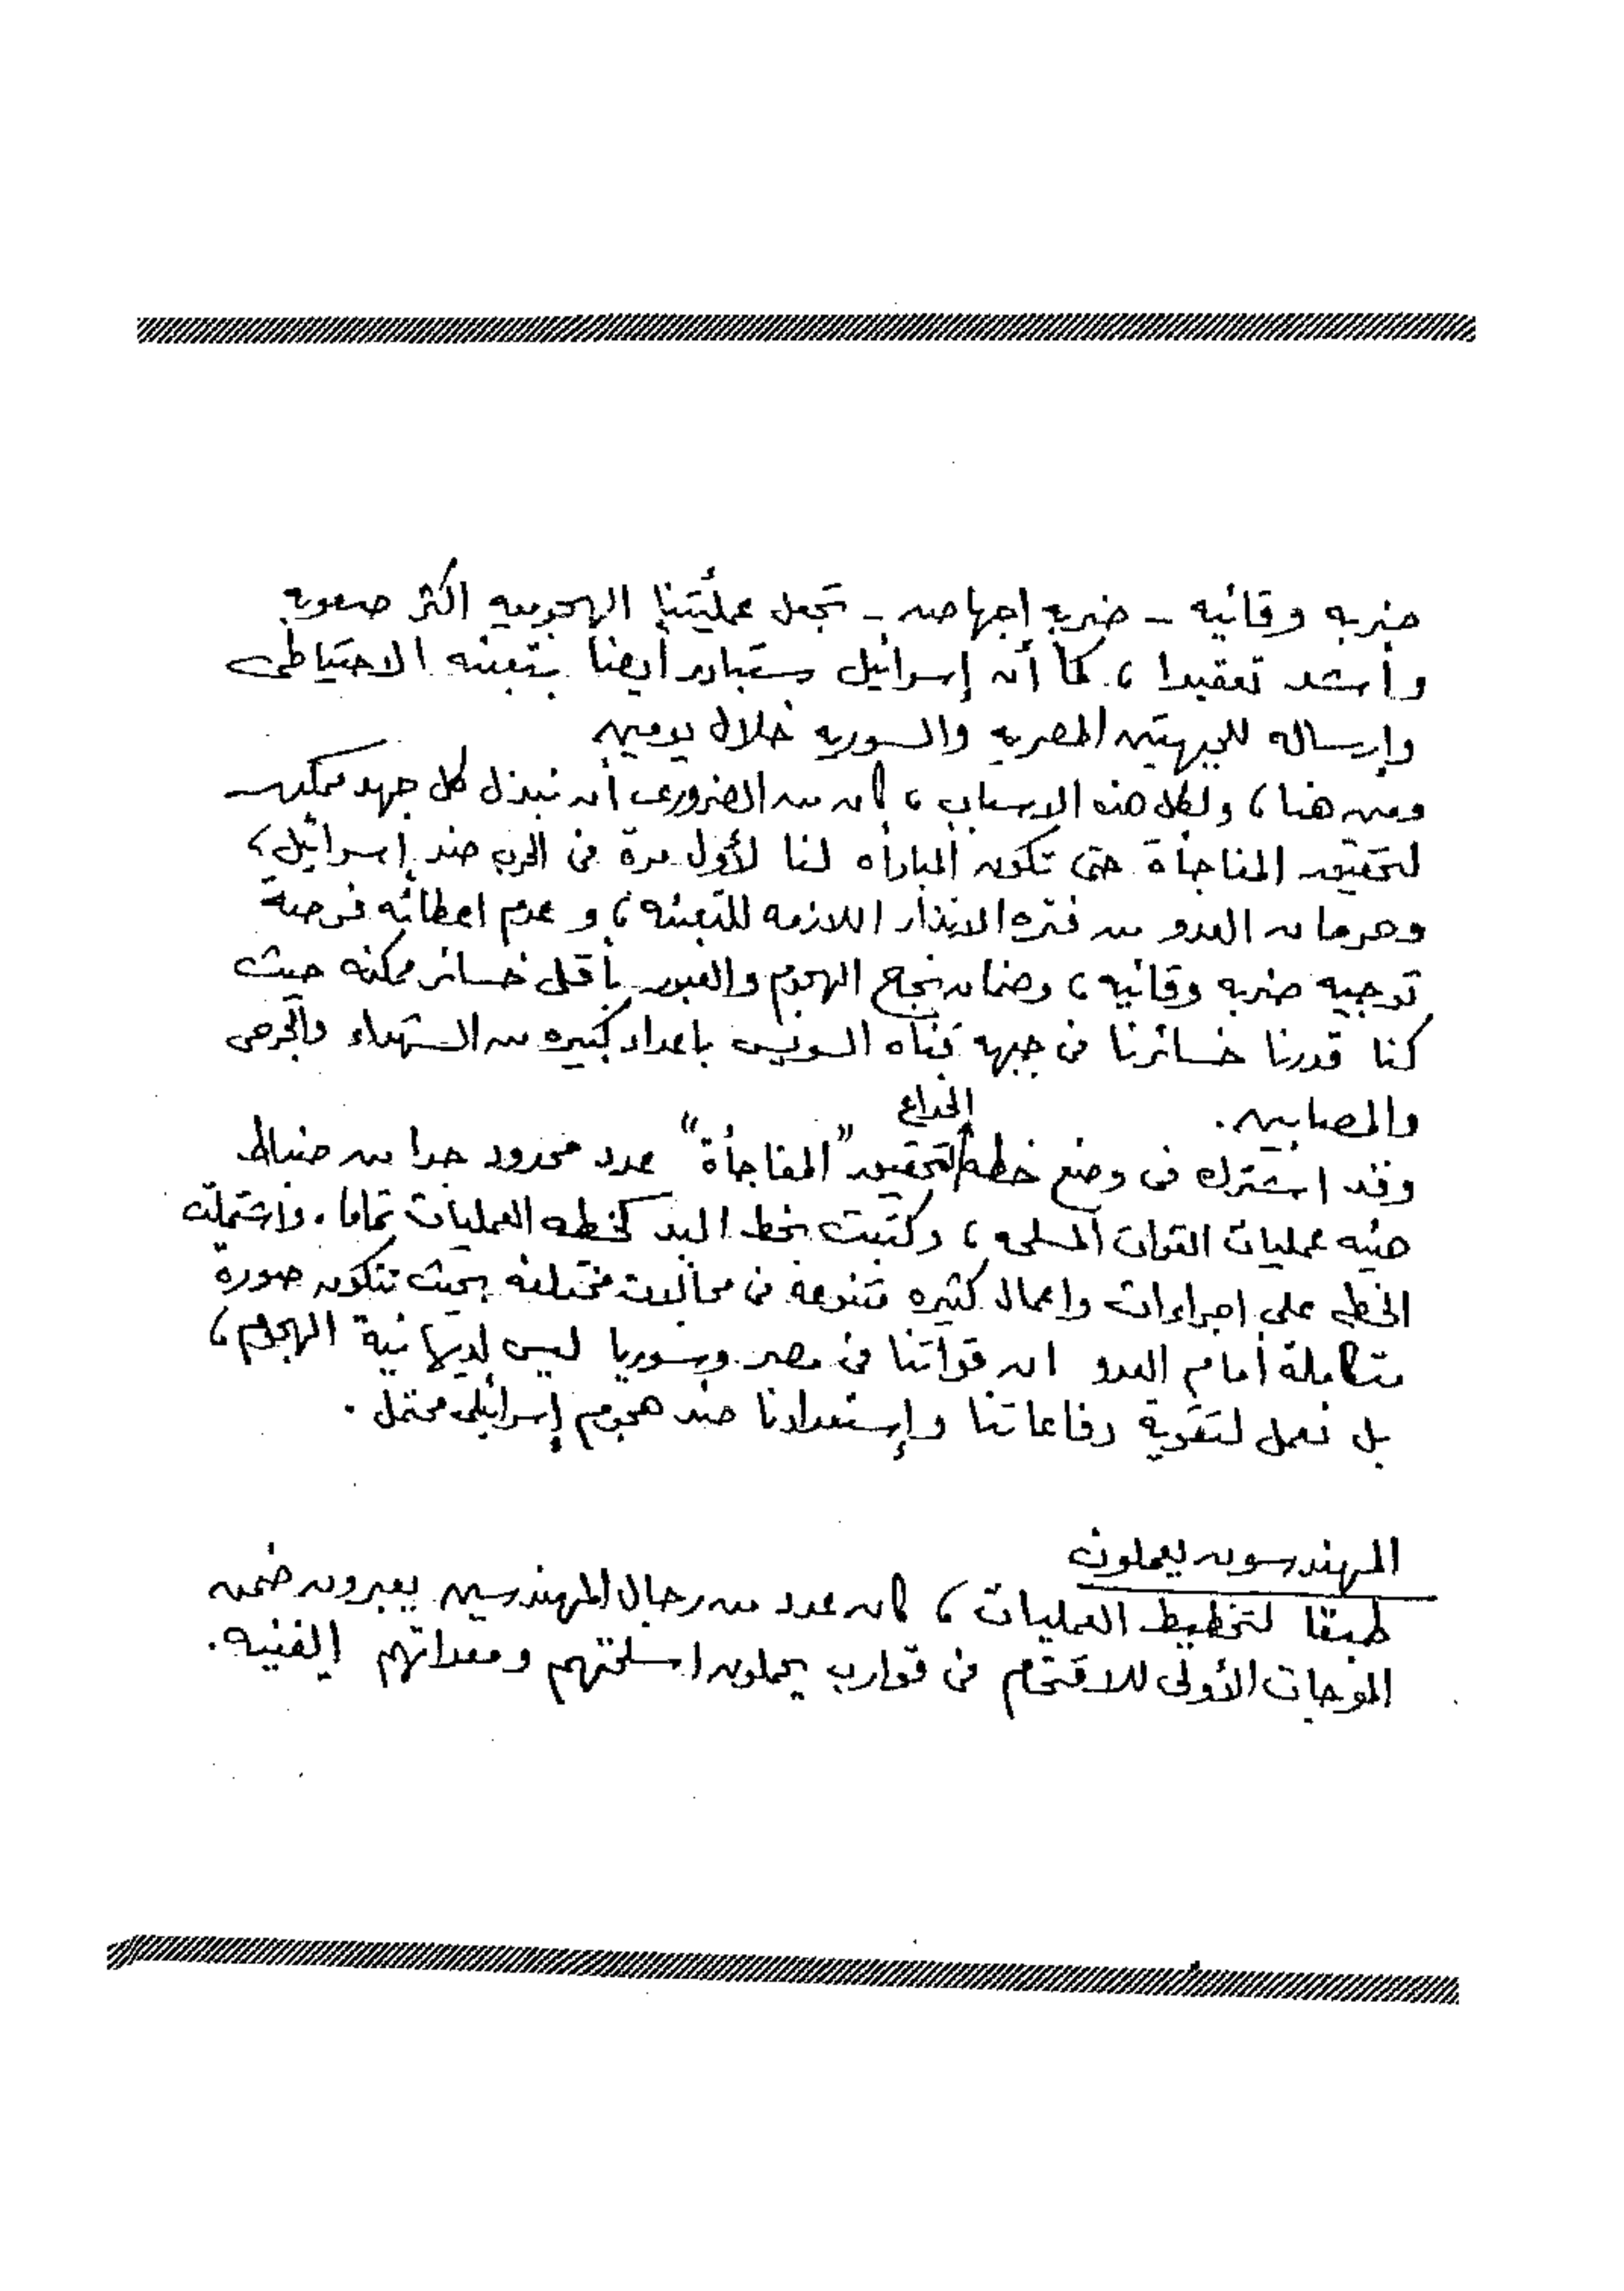 ضربه وقائيه - ضربه إجهاضيه - تجعل عمليتنا الهجوميه اكثر صعوبه
وأشد تعقيدا ، كما أن إسرائيل ستبادر أيضا بتعبئه الاحتياطى
وإرساله للجبهتين المصريه والسوريه خلال يومين
ومن هنا ، ولكل هذه الاسباب ، كان من الضرورى أن نبذل كل جهد ممكن
لتحقيق المفاجأة حتى تكون المبادأه لنا لأول مرة فى الحرب ضد إسرائيل ،
وحرمان العدو من فتره الانذار اللازمه للتعبئه ، وعدم اعطائه فرصة
توجيه ضربه وقائيه ، وضمان نجاح الهجوم والعبور بأقل خسائر ممكنه حيث
كنا قدرنا خسائرنا فى جبهه قناه السويس باعداد كبيره من الشهداء والجرحى
والمصابين .
وقد اشترك فى وضع خطه الخداع لتحقيق "المفاجأة" عدد محدود جدا من ضباط
هيئه عمليات القوات المسلحه ، وكتبت بخط اليد كخطه العمليات تماما . واشتملت
الخطه على اجراءات واعمال كثيره متنوعه فى مجالات مختلفه بحيث تتكون صورة
متكاملة أمام العدو ان قواتنا فى مصر وسوريا ليس لديها نية الهجوم ،
بل نعمل لتقوية دفاعاتنا وإستعدادنا ضد هجوم إسرائيلى محتمل .
المهندسون يعملون
طبقا لتخطيط العمليات ، كان عدد من رجال المهندسين يعبرون ضمن
الموجات الأولى للاقتحام فى قوارب يحملون اسلحتهم ومعداتهم الفنيه .